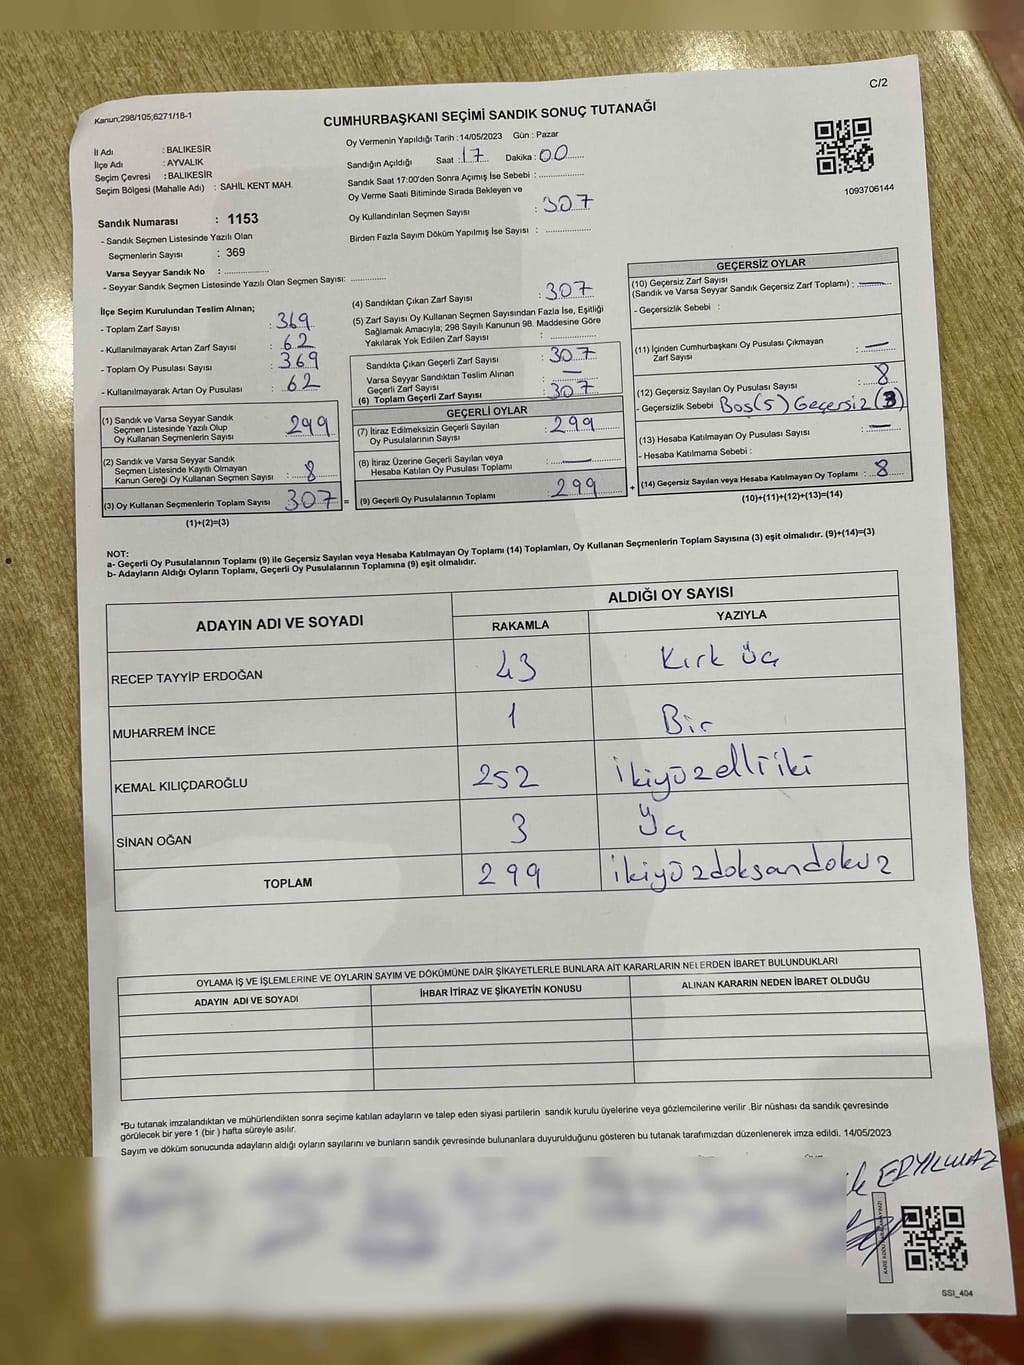 C/2
Kanun;298/105;6271/18-1
CUMHURBAŞKANI SEÇİMİ SANDIK SONUÇ TUTANAĞI
İl Adı : BALIKESİR
İlçe Adı : AYVALIK
Seçim Çevresi : BALIKESİR
Seçim Bölgesi (Mahalle Adı) : SAHİL KENT MAH.
Oy Vermenin Yapıldığı Tarih : 14/05/2023 Gün : Pazar
Sandığın Açıldığı Saat : 17 Dakika : 00
Sandık Saat 17:00'den Sonra Açmış İse Sebebi :
Oy Verme Saati Bitiminde Sırada Bekleyen ve
Oy Kullandırılan Seçmen Sayısı : 307
Birden Fazla Sayım Döküm Yapılmış İse Sayısı :
1093706144
Sandık Numarası : 1153
- Sandık Seçmen Listesinde Yazılı Olan
Seçmenlerin Sayısı : 369
Varsa Seyyar Sandık No :
- Seyyar Sandık Seçmen Listesinde Yazılı Olan Seçmen Sayısı:
İlçe Seçim Kurulundan Teslim Alınan;
- Toplam Zarf Sayısı : 369
- Kullanılmayarak Artan Zarf Sayısı : 62
- Toplam Oy Pusulası Sayısı : 369
- Kullanılmayarak Artan Oy Pusulası : 62
(1) Sandık ve Varsa Seyyar Sandık
Seçmen Listesinde Yazılı Olup
Oy Kullanan Seçmenlerin Sayısı : 299
(2) Sandık ve Varsa Seyyar Sandık
Seçmen Listesinde Kayıtlı Olmayan
Kanun Gereği Oy Kullanan Seçmen Sayısı : 8
(3) Oy Kullanan Seçmenlerin Toplam Sayısı 307 =
(1)+(2)=(3)
(4) Sandıktan Çıkan Zarf Sayısı : 307
(5) Zarf Sayısı Oy Kullanan Seçmen Sayısından Fazla İse, Eşitliği
Sağlamak Amacıyla; 298 Sayılı Kanunun 98. Maddesine Göre
Yakılarak Yok Edilen Zarf Sayısı :
Sandıkta Çıkan Geçerli Zarf Sayısı : 307
Varsa Seyyar Sandıktan Teslim Alınan
Geçerli Zarf Sayısı : —
(6) Toplam Geçerli Zarf Sayısı : 307
GEÇERLİ OYLAR
(7) İtiraz Edilmeksizin Geçerli Sayılan
Oy Pusulalarının Sayısı : 299
(8) İtiraz Üzerine Geçerli Sayılan veya
Hesaba Katılan Oy Pusulası Toplamı : —
(9) Geçerli Oy Pusulalarının Toplamı : 299 +
GEÇERSİZ OYLAR
(10) Geçersiz Zarf Sayısı
(Sandık ve Varsa Seyyar Sandık Geçersiz Zarf Toplamı) : —
- Geçersizlik Sebebi :
(11) İçinden Cumhurbaşkanı Oy Pusulası Çıkmayan
Zarf Sayısı : —
(12) Geçersiz Sayılan Oy Pusulası Sayısı : 8
- Geçersizlik Sebebi Boş(5) Geçersiz (3)
(13) Hesaba Katılmayan Oy Pusulası Sayısı : —
- Hesaba Katılmama Sebebi :
(14) Geçersiz Sayılan veya Hesaba Katılmayan Oy Toplamı : 8
(10)+(11)+(12)+(13)=(14)
NOT:
a- Geçerli Oy Pusulalarının Toplamı (9) ile Geçersiz Sayılan veya Hesaba Katılmayan Oy Toplamı (14) Toplamları, Oy Kullanan Seçmenlerin Toplam Sayısına (3) eşit olmalıdır. (9)+(14)=(3)
b- Adayların Aldığı Oyların Toplamı, Geçerli Oy Pusulalarının Toplamına (9) eşit olmalıdır.
ADAYIN ADI VE SOYADI
ALDIĞI OY SAYISI
RAKAMLA YAZIYLA
RECEP TAYYİP ERDOĞAN 43 Kırk üç
MUHARREM İNCE 1 Bir
KEMAL KILIÇDAROĞLU 252 İkiyüzelliiki
SİNAN OĞAN 3 Üç
TOPLAM 299 ikiyüzdoksandokuz
OYLAMA İŞ VE İŞLEMLERİNE VE OYLARIN SAYIM VE DÖKÜMÜNE DAİR ŞİKAYETLERLE BUNLARA AİT KARARLARIN NELERDEN İBARET BULUNDUKLARI
ADAYIN ADI VE SOYADI İHBAR İTİRAZ VE ŞİKAYETİN KONUSU ALINAN KARARIN NEDEN İBARET OLDUĞU
*Bu tutanak imzalandıktan ve mühürlendikten sonra seçime katılan adayların ve talep eden siyasi partilerin sandık kurulu üyelerine veya gözlemcilerine verilir .Bir nüshası da sandık çevresinde
görülecek bir yere 1 (bir ) hafta süreyle asılır.
Sayım ve döküm sonucunda adayların aldığı oyların sayılarını ve bunların sandık çevresinde bulunanlara duyurulduğunu gösteren bu tutanak tarafımızdan düzenlenerek imza edildi. 14/05/2023
ERYILMAZ
SSI_404